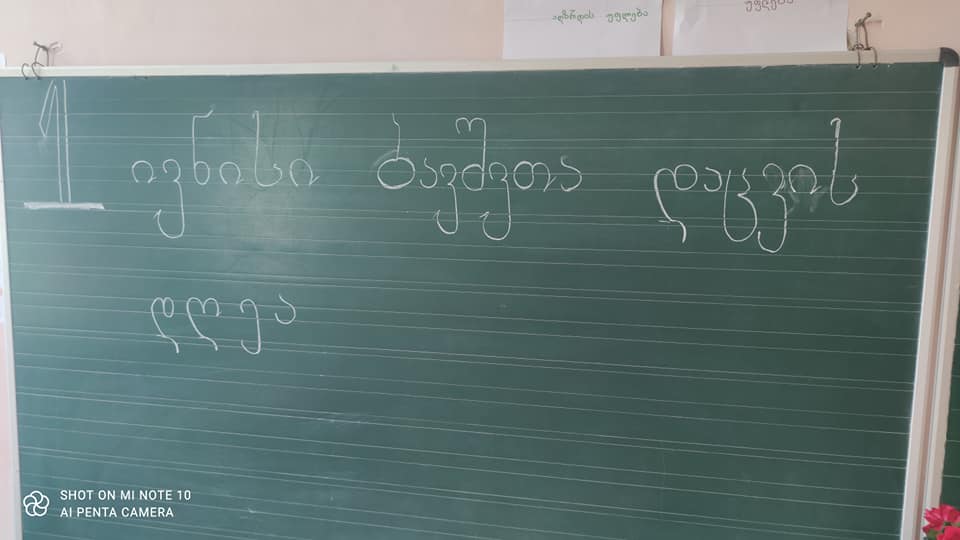 აღზრდის უფლება
უფლება
1 ივნისი ბავშვთა დაცვის
დღეა
SHOT ON MI NOTE 10
AI PENTA CAMERA